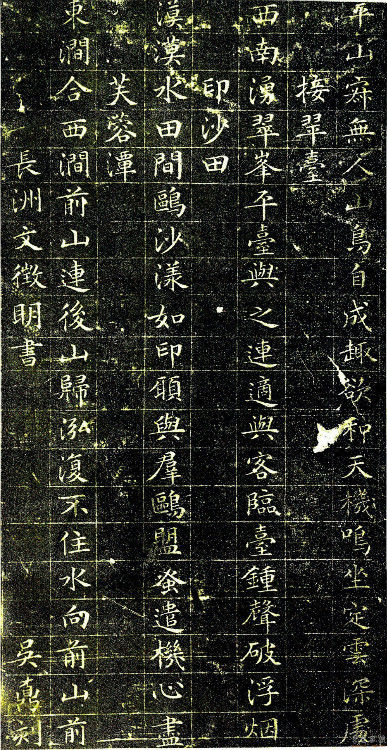 山寂無人山鳥自成趣欲和天機鳴坐定雲深處
接翠臺
西南湧翠峯平臺與之連適與客臨臺鍾聲破浮烟
印沙田
漠漠水田間鷗沙漾如印願與羣鷗盟蚤遣機心盡
芙蓉潭
東澗合西澗前山連後山歸泓復不住水向前山前
長洲文徵明書 吳鼒刻